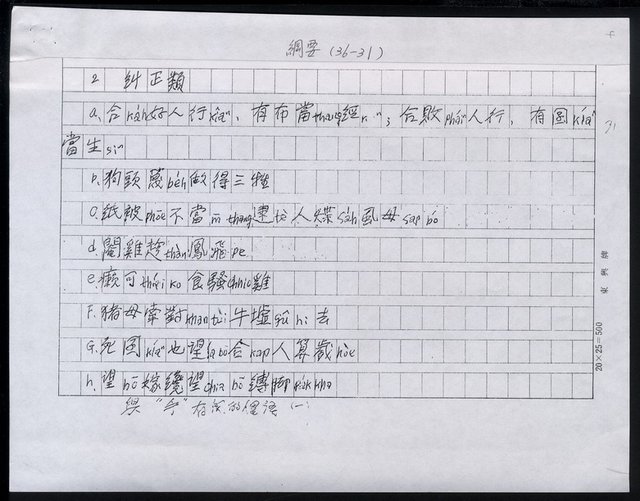 綱要 (36-31)
2. 糾正類
a. 合kah好人行kiâⁿ、有布當thang經kiⁿ;合敗pháiⁿ人行,有囝kiáⁿ
31
當生siⁿ
b. 狗頭蔑beh做得三牲
c. 紙被phōe不當m̄ thang tè 人煠sa̍h虱母sap bó
d. 閹雞趁thàn鳳飛pe
e. 癩可thái ko 食騷chhio雞
f. 豬母牽對khan tùi牛墟gû hi去
g. 死囝kiáⁿ也望bō合kap人算歲hòe
h. 望bō嫁纔望chiah bō縛腳pa̍k kha
與"手"有 的俚語(一
20×25=500